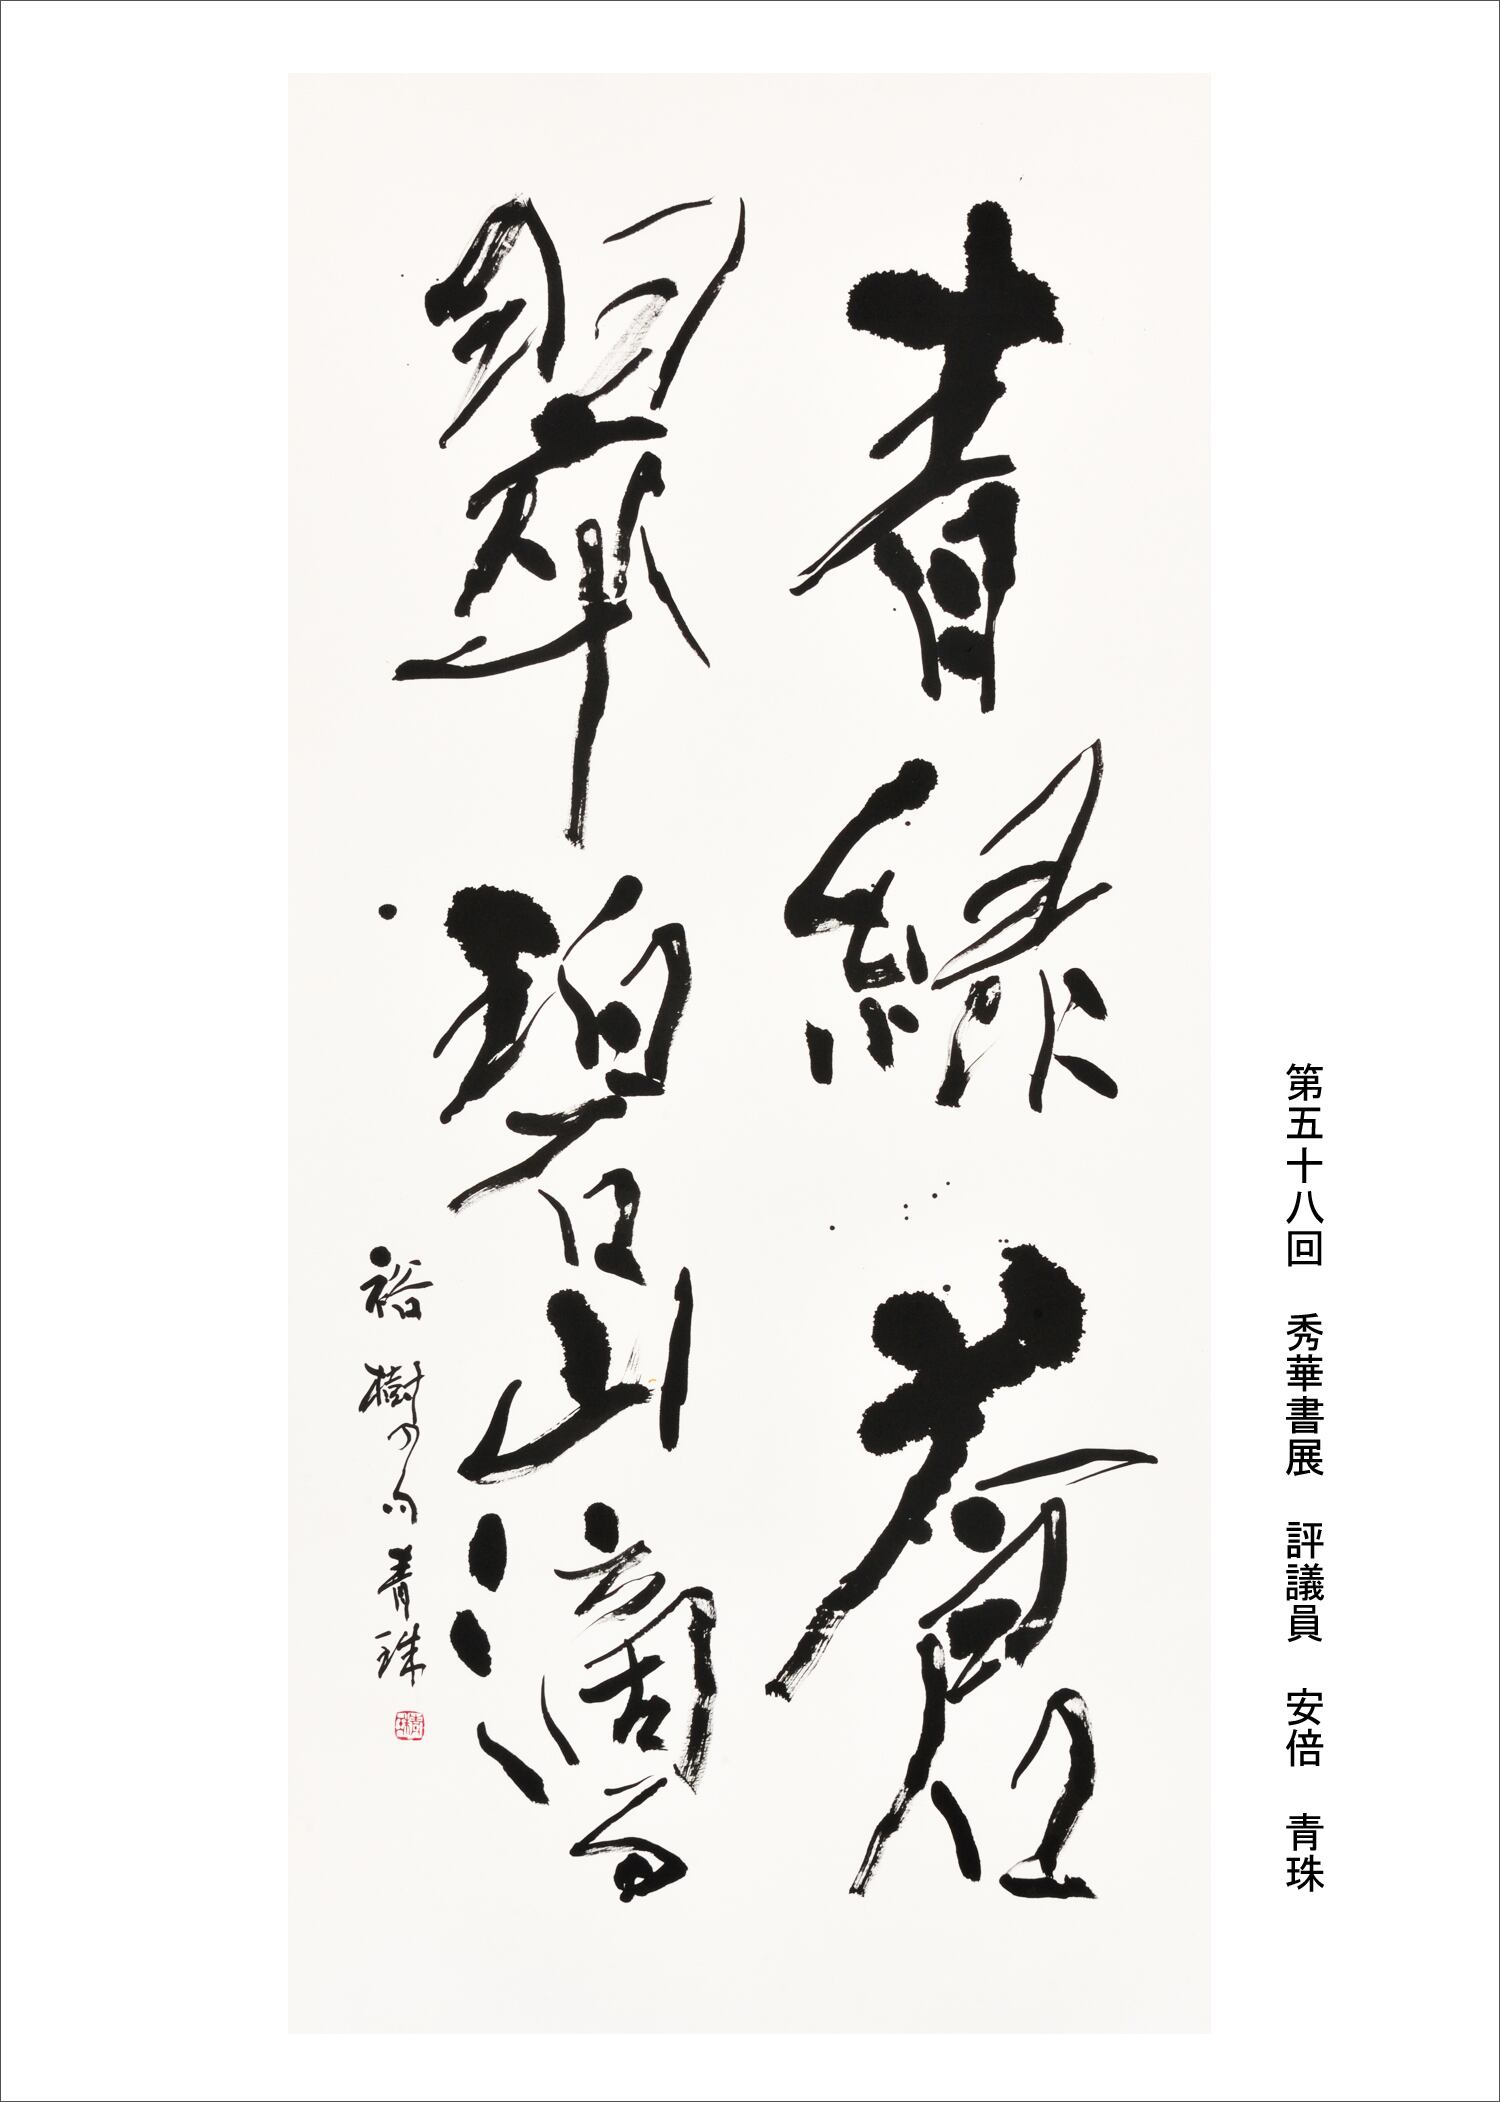 第五十八回　秀華書展　評議員　安倍　青珠
青緑蒼
翠碧山滴る
裕樹の句 青珠